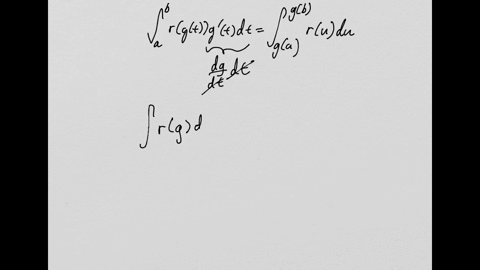 ∫_a^b r(g(t))g'(t)dt = ∫_{g(a)}^{g(b)} r(u)du
dg/dt dt
∫ r(g)d